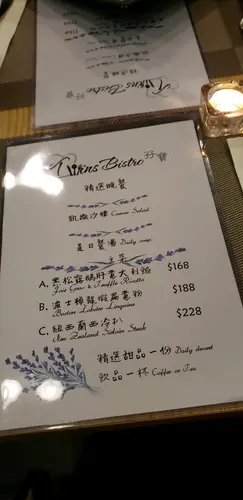 Twins Bistro 孖寶
精選晚餐
凱撒沙律 Caesar Salad
是日餐湯 Daily soup
主菜
A. 黑松露鴨肝意大利飯 $168
Foie Gras & Truffle Risotto
B. 波士頓龍蝦扁意粉 $188
Boston Lobster Linguine
C. 紐西蘭西冷扒 $228
New Zealand Sirloin Steak
精選甜品一份 Daily dessert
飲品一杯 Coffee or Tea